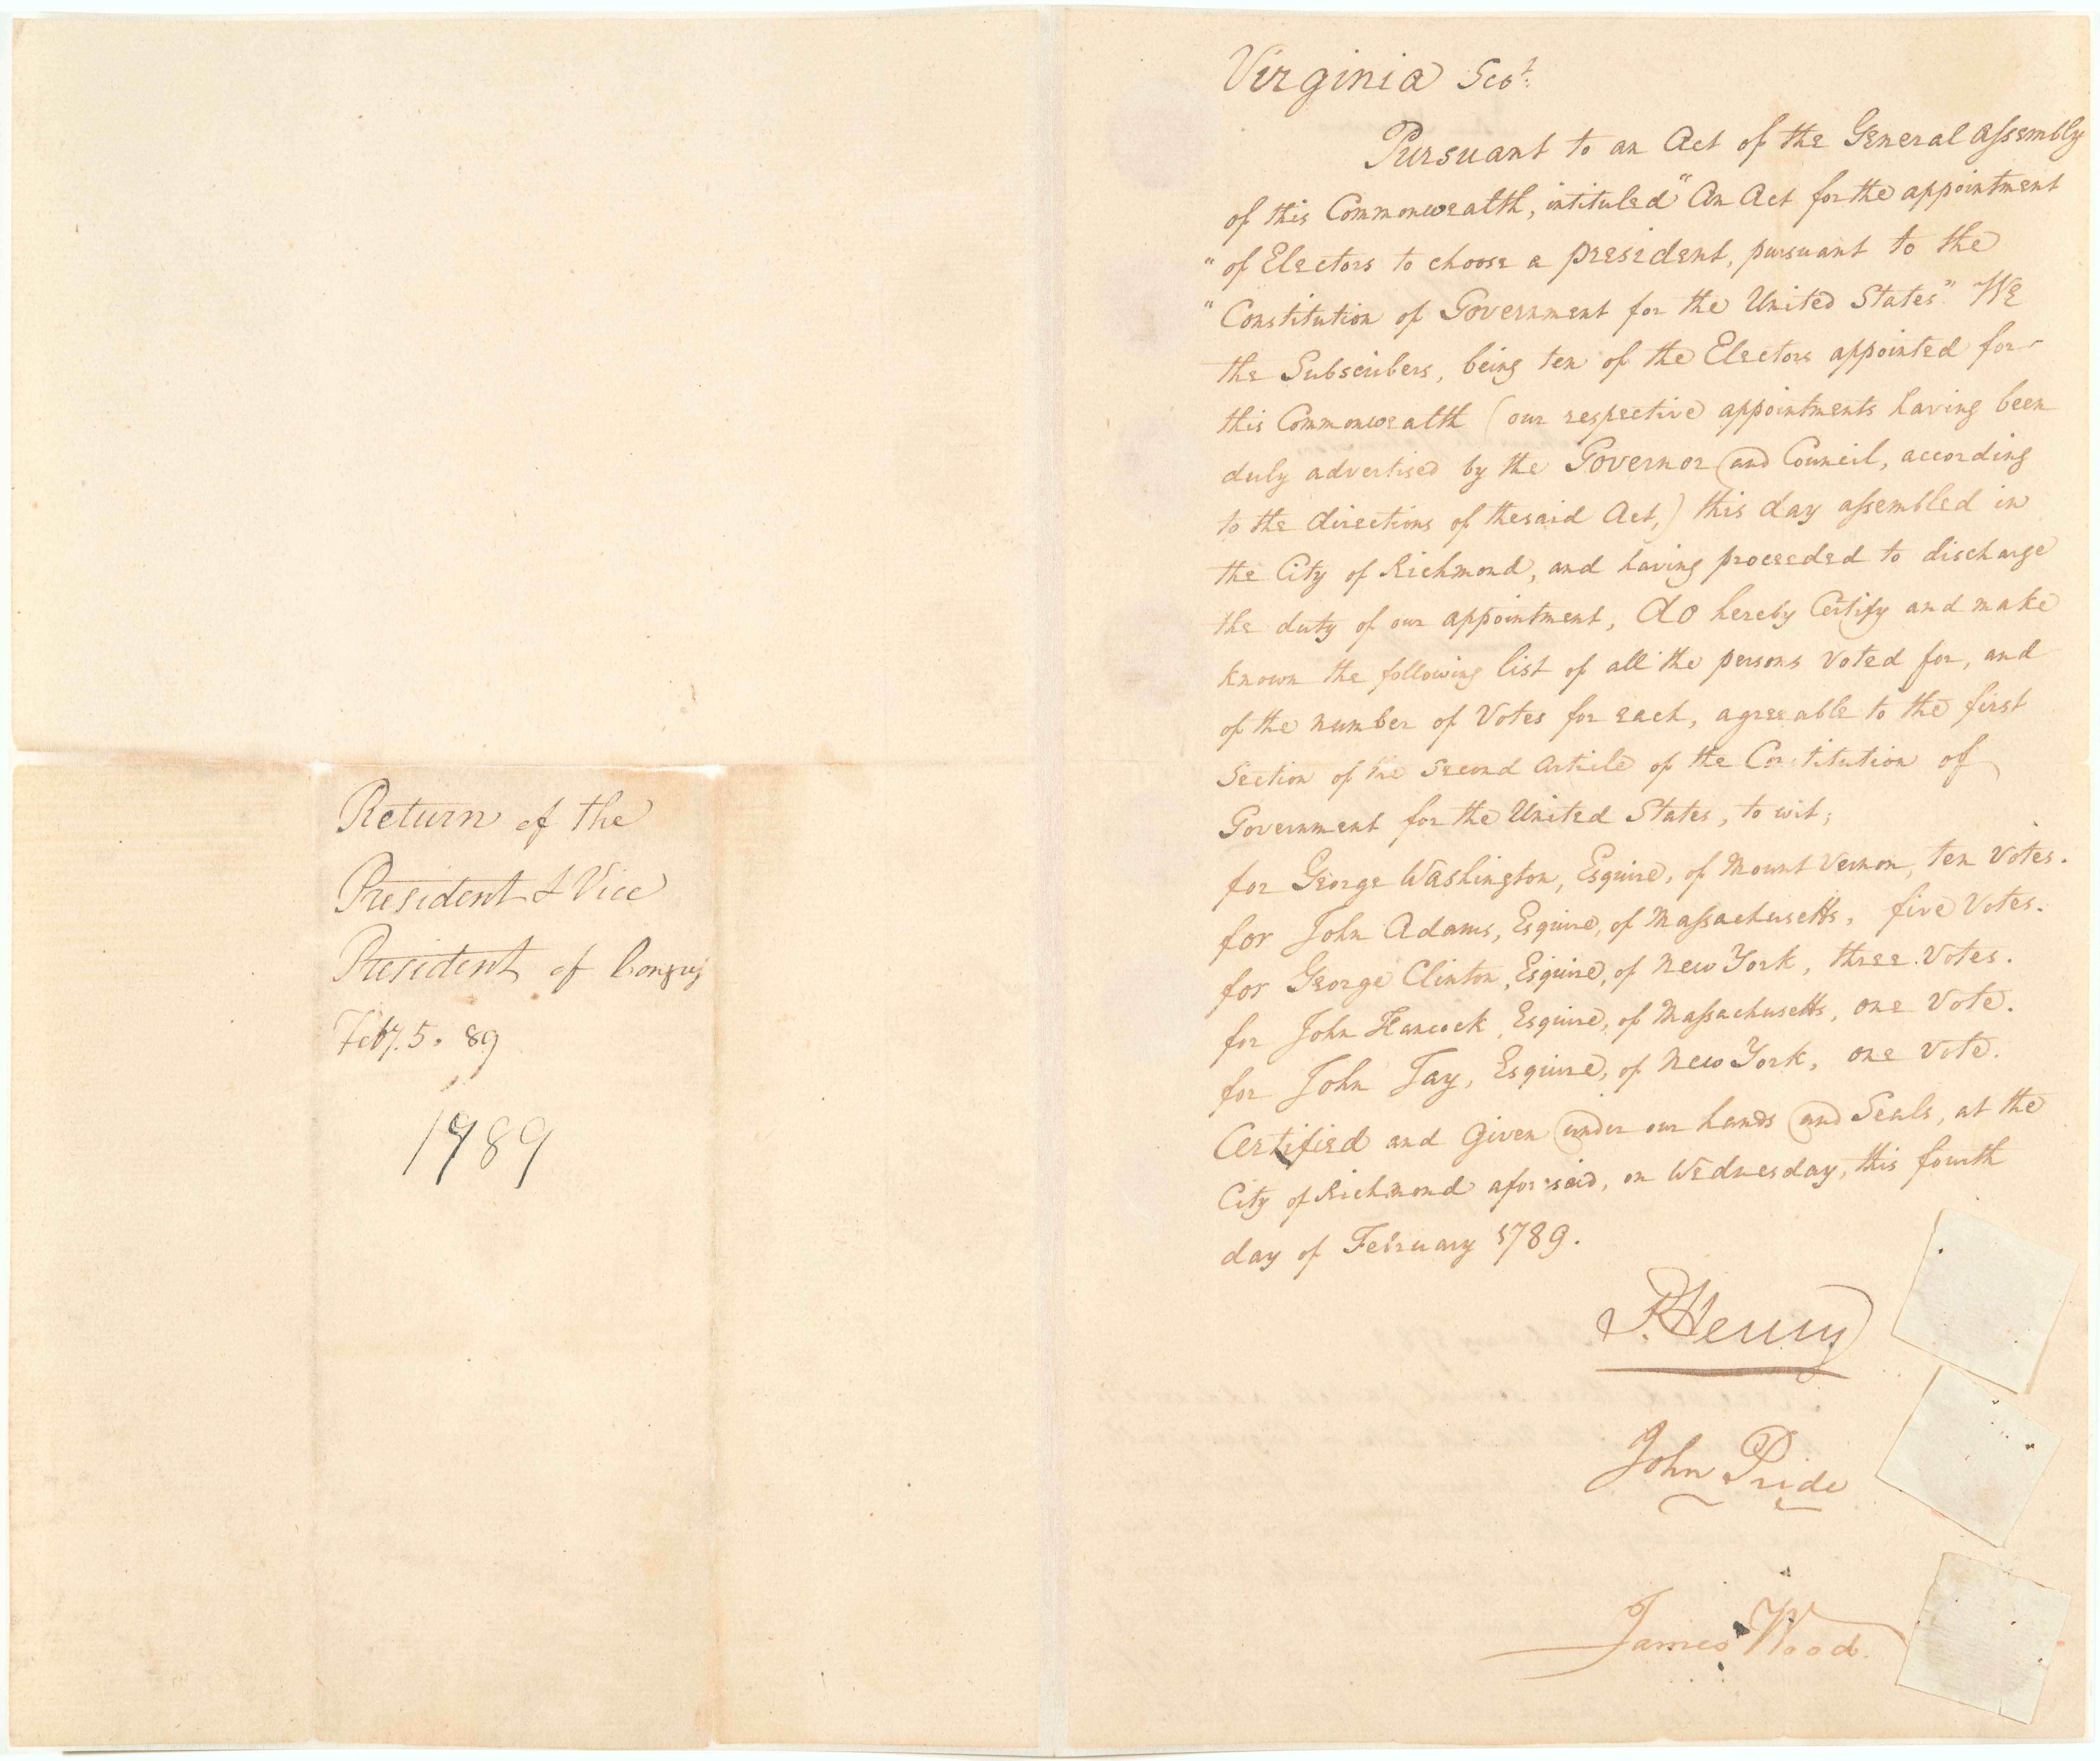 Return of the
President & Vice
President of Congress
Feby. 5. 89
1789
Virginia Sct.
Pursuant to an Act of the General Assembly
of this Commonwealth, intituled "An Act for the appointment
"of Electors to choose a president, pursuant to the
"Constitution of Government for the United States" We
the Subscribers, being ten of the Electors appointed for
this Commonwealth (our respective appointments having been
duly advertised by the Governor and Council, according
to the directions of the said Act,) this day assembled in
the City of Richmond, and having proceeded to discharge
the duty of our appointment, do hereby Certify and make
known the following list of all the persons voted for, and
of the number of Votes for each, agreeable to the first
Section of the Second Article of the Constitution of
Government for the United States, to wit;
for George Washington, Esquire, of Mount Vernon, ten Votes.
for John Adams, Esquire, of Massachusetts, five Votes.
for George Clinton, Esquire, of New York, three Votes.
for John Hancock, Esquire, of Massachusetts, one Vote.
for John Jay, Esquire, of New York, one Vote.
Certified and Given under our hands and Seals, at the
City of Richmond aforesaid, on Wednesday, this fourth
day of February 1789.
P. Henry
John Pride
James Wood.